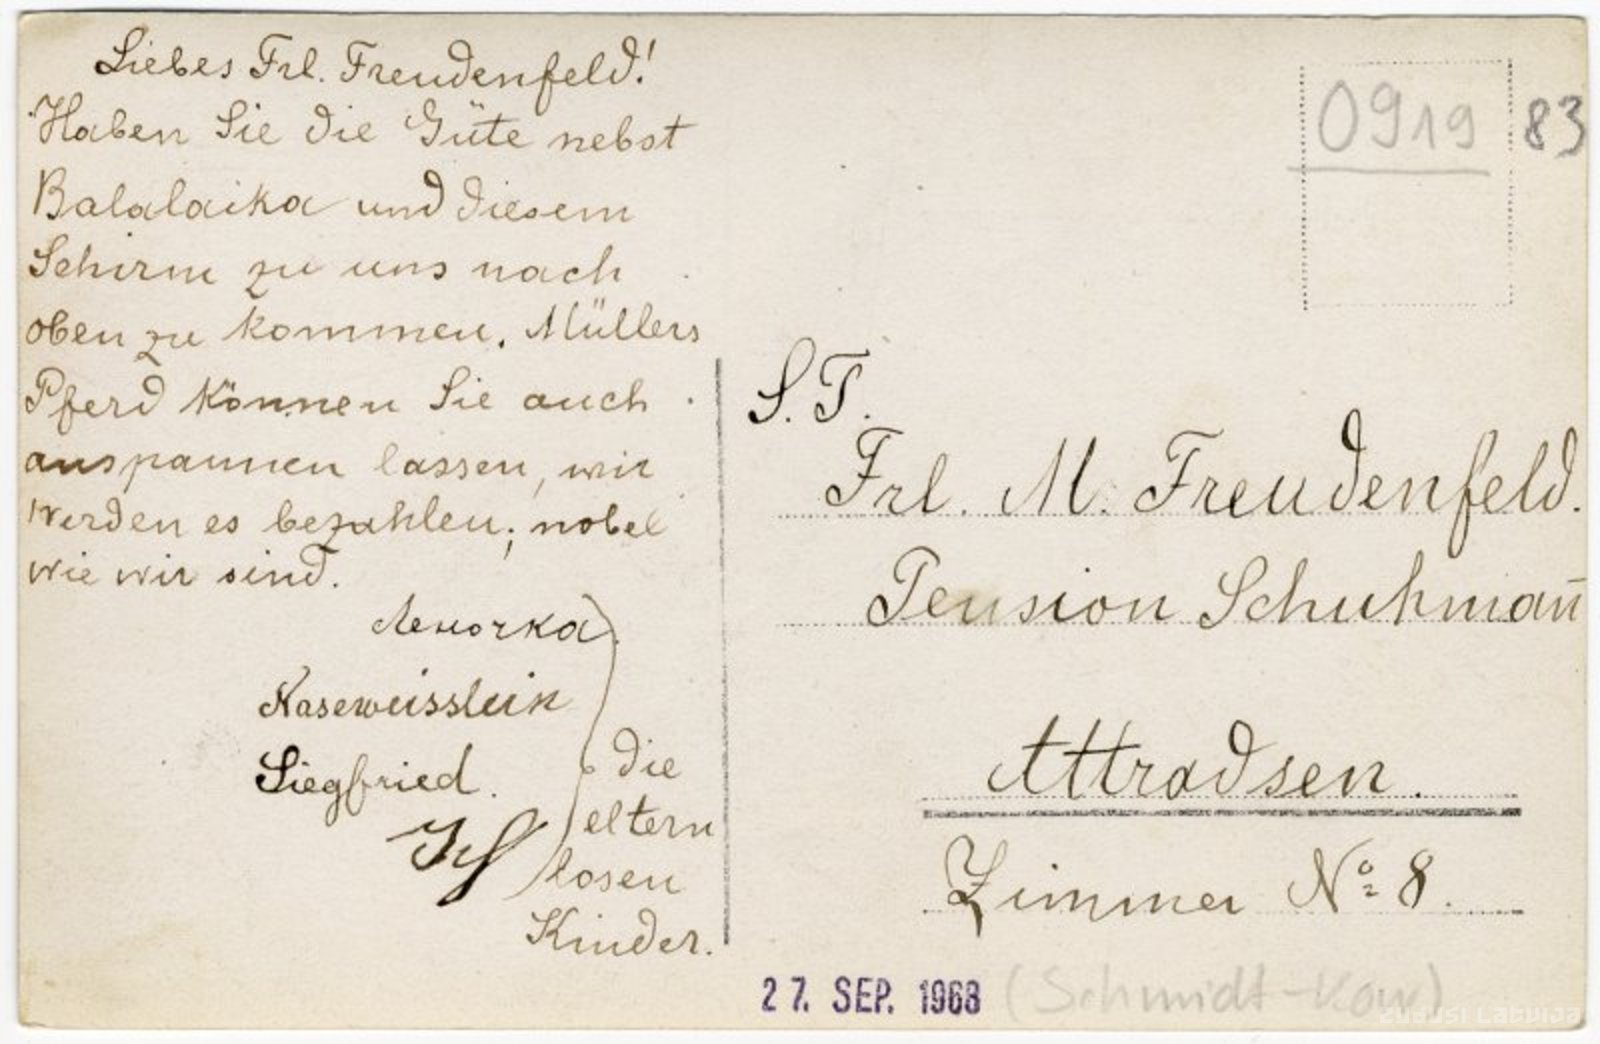 Liebes Frl. Freudenfeld!
Haben Sie die Güte nebst
Balalaika und diesem
Schirm zu uns nach
oben zu kommen. Müllers
Pferd können Sie auch
anspannen lassen, wir
werden es bezahlen; nobel
wie wir sind.
Леночка
Naseweisslein
Siegfried.
die
eltern
losen
Kinder.
0919
83
S. T.
Frl. M. Freudenfeld.
Pension Schuhman̄
Attradsen.
Zimmer No 8.
27. SEP. 1968
(Schmidt-Kow)
zudusi Latvija